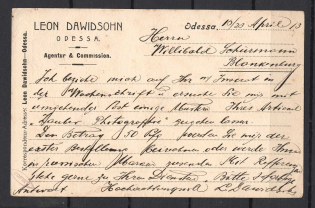 LEON DAWIDSOHN
ODESSA.
Agentur & Commission.
Korrespondenz-Adresse: Leon Dawidsohn—Odessa.
Odessa, 10/23 April 13
Herrn
Willibald Schürmann
Blankenburg
Ich beziehe mich auf Ihr Inserat in
der Wochenschrift u ersuche Sie mir mit
umgehender Post einige Muster Ihres Artikel
Photographie zugehen lassen
Den Betrag 50 Pfg werden Sie mir der
ersten Bestellung oder werde Ihnen
in Marken Mit Referenzen
stehe gerne zu Ihren Diensten. Bitte
Antwort Hochachtungsvoll L. Dawidsohn